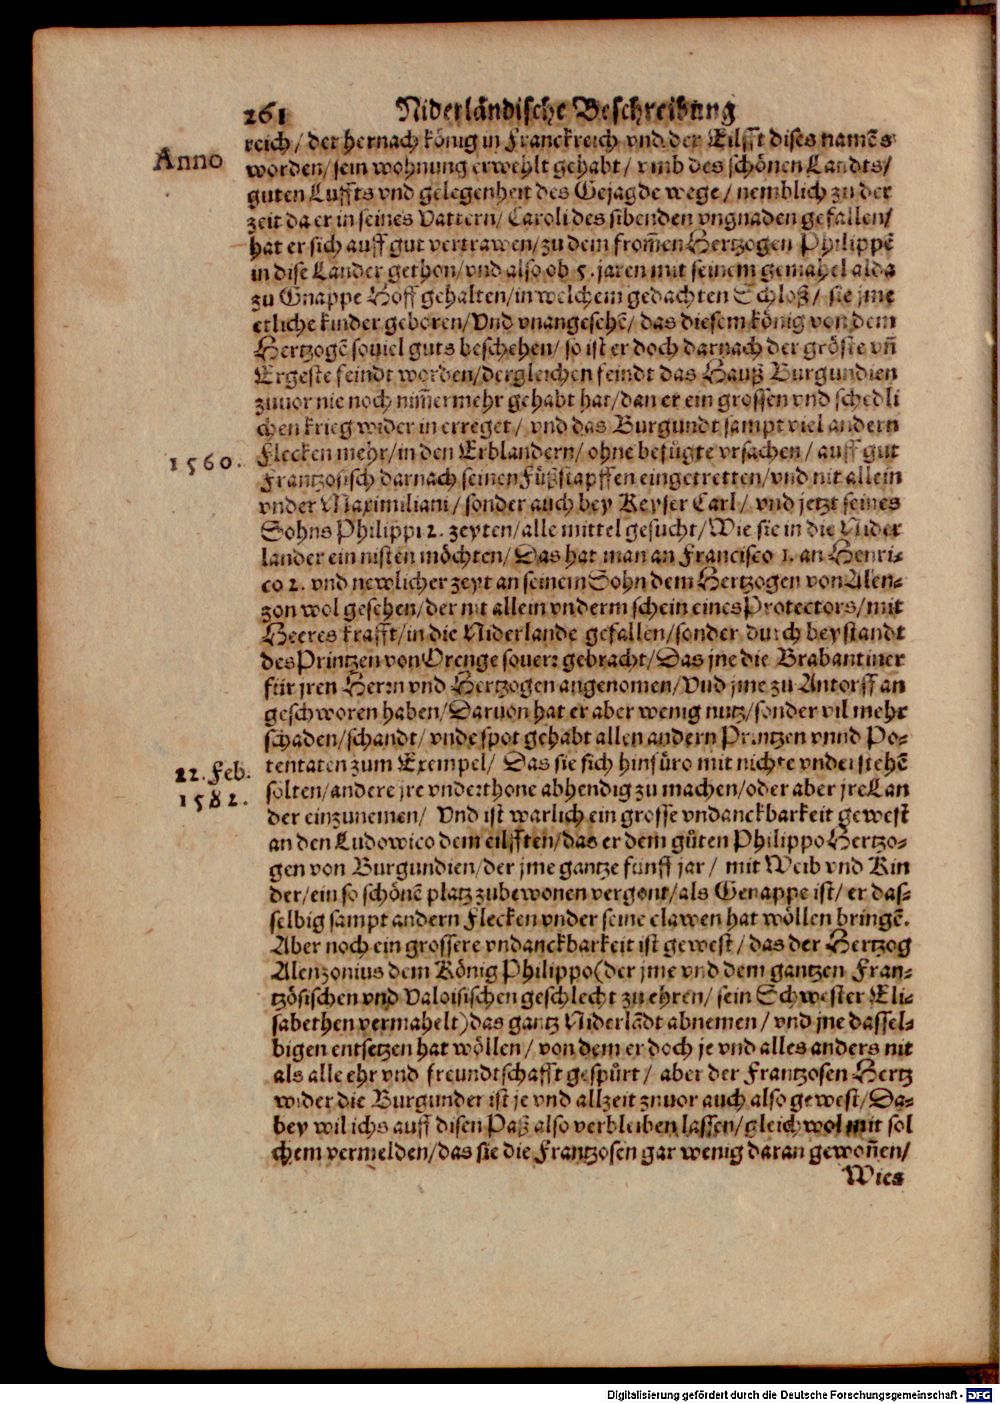 261 Niderländische Beschreibung
reich / der hernach könig in Franckreich vnd der Eilfft dises namẽs
Anno
worden / sein wohnung erwehlt gehabt / vmb des schönen Landts /
guten Luffts vnd gelegenheit des Gejagde wege / nemblich zu der
zeit da er in seines Vattern / Caroli des sibenden vngnaden gefallen /
hat er sich auff gut vertrawen / zu dem from̃en Hertzogen Philippẽ
in dise Lander gethon / vnd also ob 5. jaren mit seinem gemahel alda
zu Gnappe Hoff gehalten / in welchem gedachten Schloß / sie jme
etliche kinder geboren / Vnd vnangesehẽ / das diesem könig von dem
Hertzogẽ souiel guts beschehen / so ist er doch darnach der gröste vñ
Ergeste feindt worden / dergleichen feindt das Hauß Burgundien
zuuor nie noch nim̃ermehr gehabt hat / dan er ein grossen vnd schedli
chen krieg wider in erreget / vnd das Burgundt sampt viel andern
1560.
Flecken mehr / in den Erblandern / ohne befügte vrsachen / auff gut
Frantzosisch darnach seinen Füßstapffen eingetretten / vnd nit allein
vnder Maximiliani / sonder auch bey Keyser Carl / vnd jetzt seines
Sohns Philippi 2. zeyten / alle mittel gesucht / Wie sie in die Nider
lander ein nisten möchten / Das hat man an Francisco 1. an Henri-
co 2. vnd newlicher zeyt an seinem Sohn dem Hertzogen von Alen-
zon wol gesehen / der nit allein vnderm schein eines Protectors / mit
Heeres krafft / in die Niderlande gefallen / sonder durch beystandt
des Printzen von Orenge souerr gebracht / Das jne die Brabantiner
für jren Herrn vnd Hertzogen angenomen / Vnd jme zu Antorff an
geschworen haben / Daruon hat er aber wenig nutz / sonder vil mehr
schaden / schandt / vnde spot gehabt allen andern Printzen vnnd Po-
22. Feb.
1582.
tentaten zum Exempel / Das sie sich hinfüro mit nichte vnderstehẽ
solten / andere jre vnderthone abhendig zu machen / oder aber jre Lan
der einzunemen / Vnd ist warlich ein grosse vndanckbarkeit gewest
an den Ludowico dem eilfften / das er dem gůten Philippo Hertzo-
gen von Burgundien / der jme gantze funff jar / mit Weib vnd Kin
der / ein so schönẽ platz zubewonen vergont / als Genappe ist / er das-
selbig sampt andern Flecken vnder seine clawen hat wöllen bringẽ.
Aber noch ein grossere vndanckbarkeit ist gewest / das der Hertzog
Alenzonius dem König Philippo (der jme vnd dem gantzen Fran-
tzösischen vnd Valoisischen geschlecht zu ehren / sein Schwester Eli-
sabethen vermahelt) das gantz Niderlãdt abnemen / vnd jne dassel-
bigen entsetzen hat wöllen / von dem er doch je vnd alles anders nit
als alle ehr vnd freundtschafft gespürt / aber der Frantzosen Hertz
wider die Burgunder ist je vnd allzeit zuuor auch also gewest / Da-
bey wil ichs auff disen Paß also verbleiben lassen / gleich wol mit sol
chem vermelden / das sie die Frantzosen gar wenig daran gewoñen /
Wies
Digitalisierung gefördert durch die Deutsche Forschungsgemeinschaft - DFG